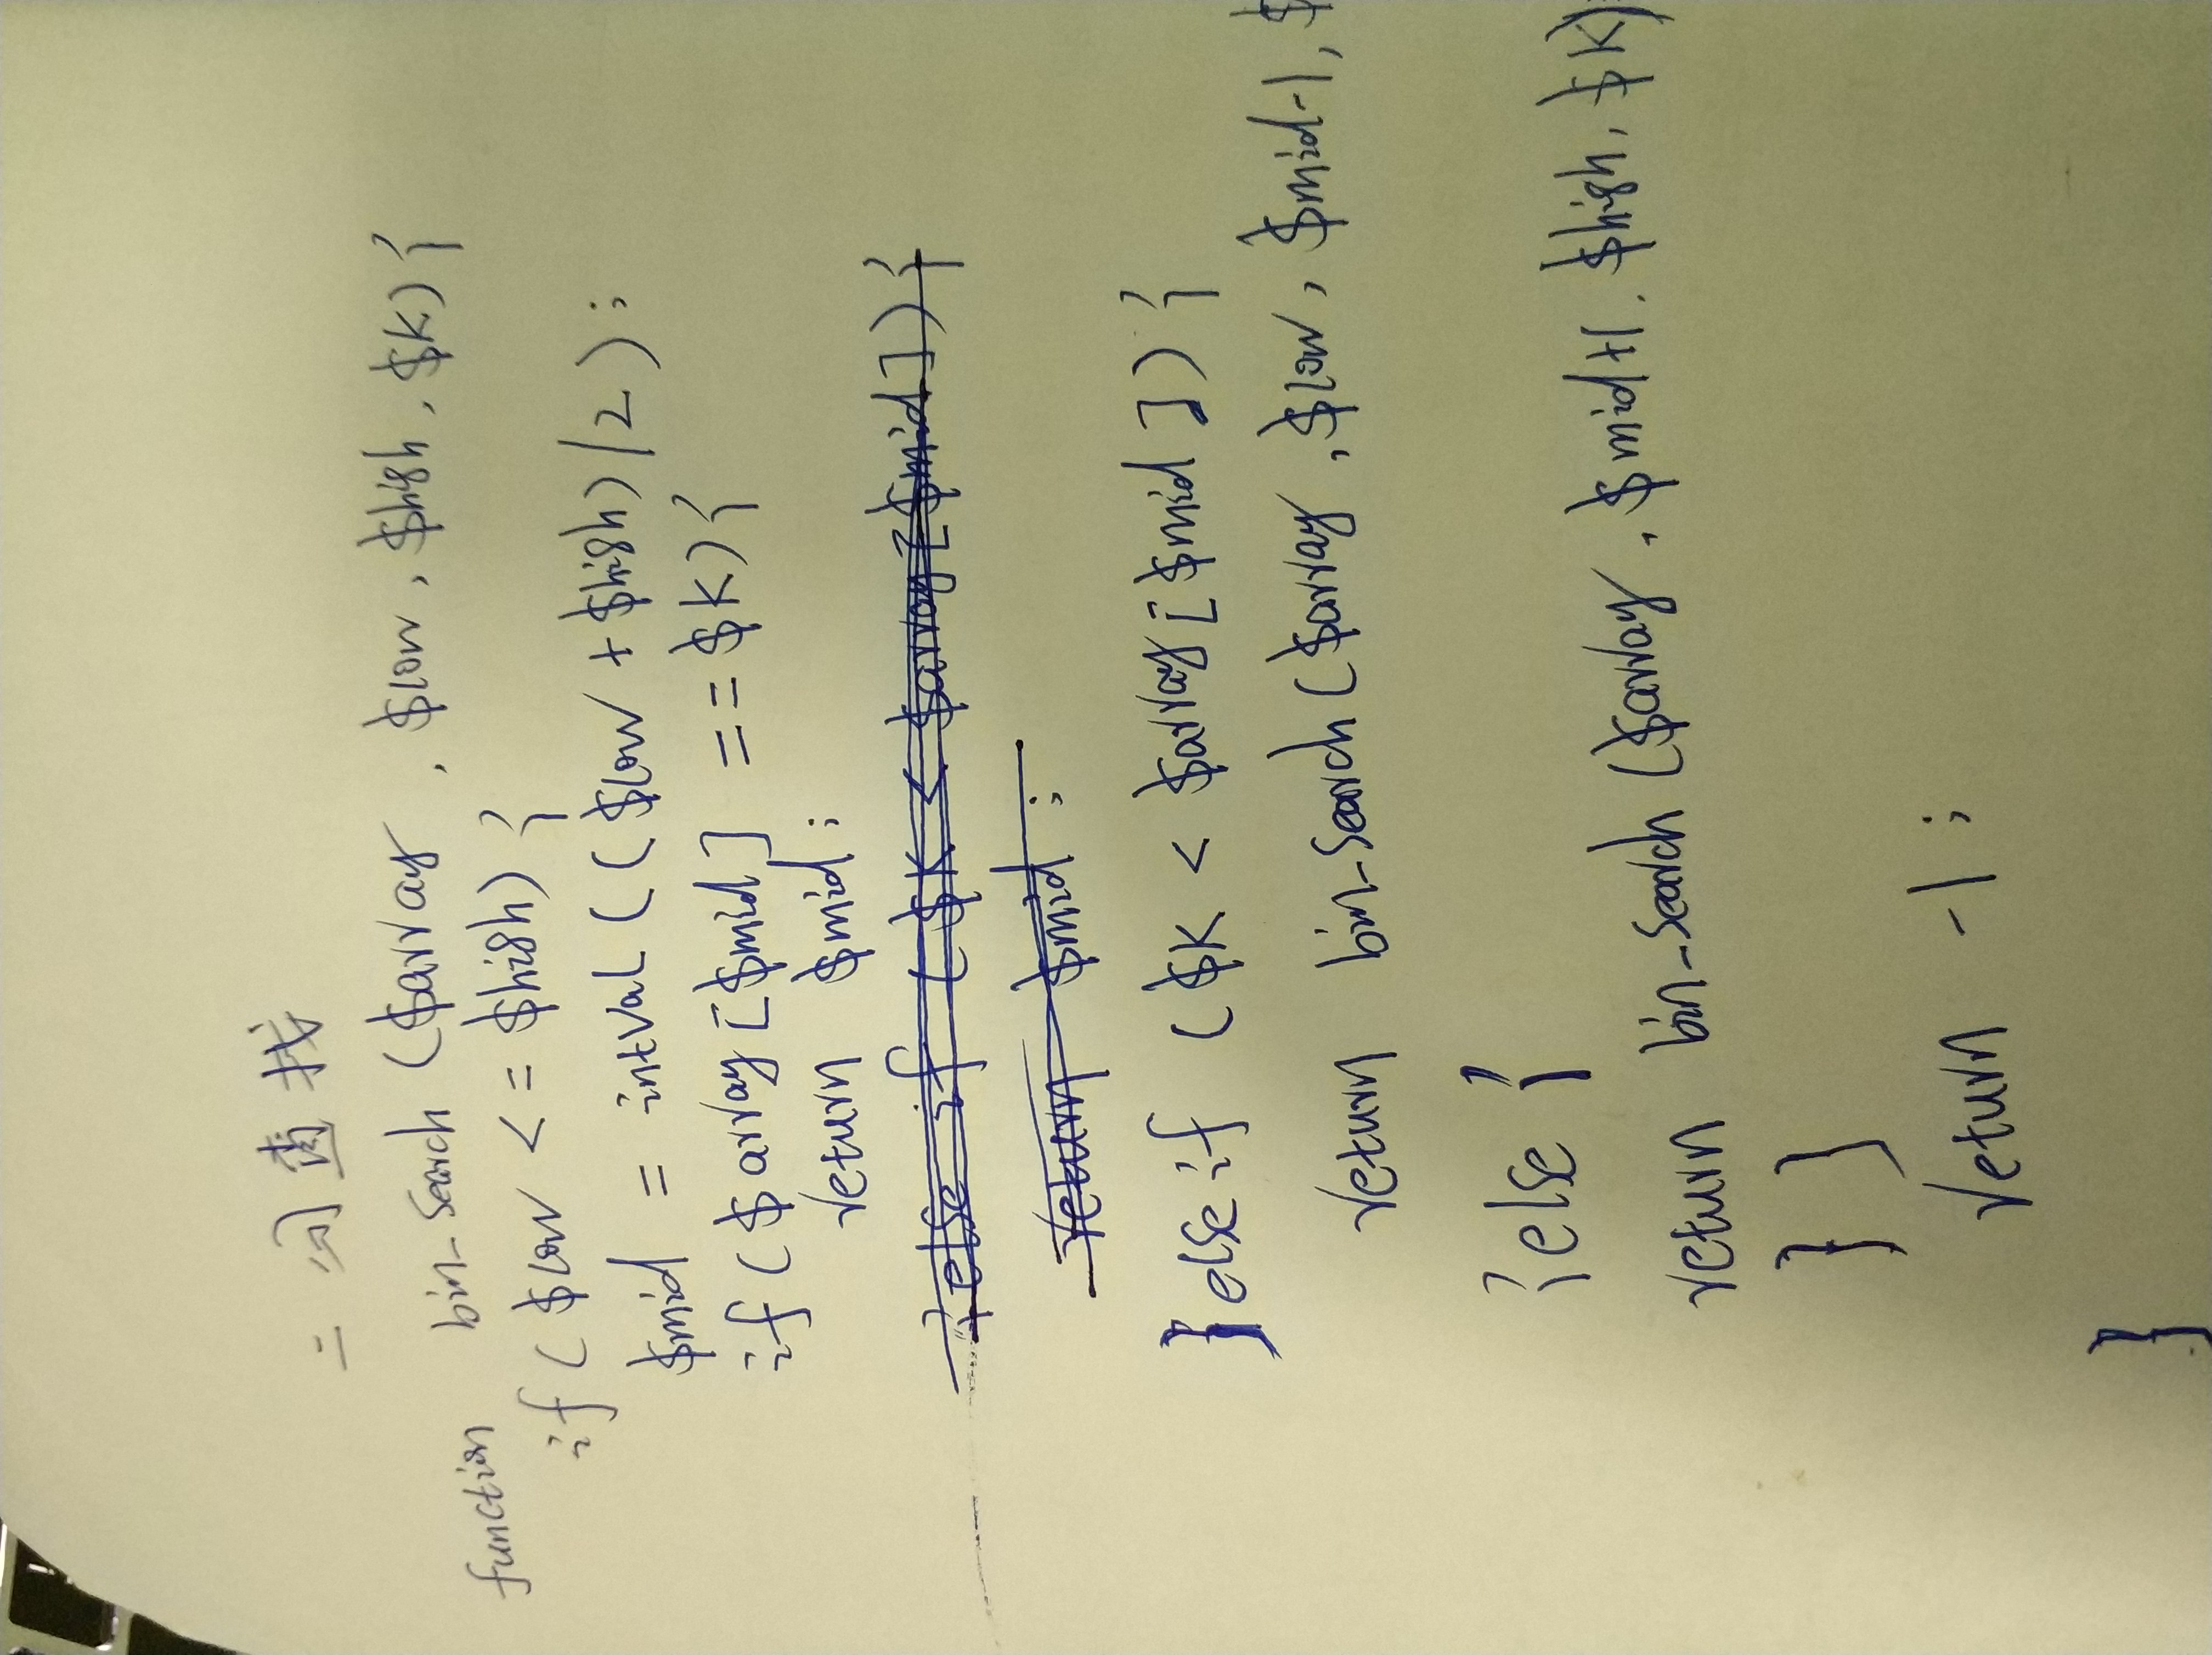 二分查找
function bin_search ($array , $low , $high , $k) {
if ($low <= $high) {
$mid = intval (($low + $high) /2 ) ;
if ($array [$mid] == $k) {
return $mid ;
} else if ($k < $array [$mid]) {
return $mid ;
} else if ($k < $array [$mid ]) {
return bin_search ($array , $low , $mid-1 , $
} else {
return bin_search ($array , $mid+1 . $high , $k)
} }
return -1 ;
}